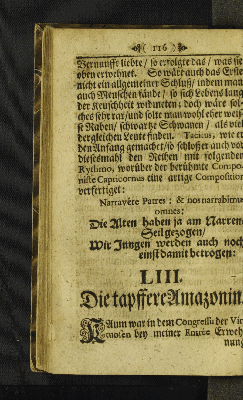 116
Vernunfft liebte/ so erfolgte das / was sie
oben erwehnet. So wäre auch das Erste
nicht ein allgemeiner Schluß/ indem man
auch Menschen fände/ so sich Lebens lang
der Keuschheit widmeten: doch wäre sol-
ches sehr rar/und solte man wohl eher weis-
se Raben/ schwartze Schwanen / als viel
dergleichen Leute finden. Tacitus, wie er
den Anfang gemacht/so schloß er auch vor
diesesmahl den Reihen mit folgenden
Rythmo, worüber der berühmte Compo-
niste Capricornus eine artige Composition
verfertiget:
Narravêre Patres: & nos narrabimus
omnes:
Die Alten haben ja am Narren-
Seil gezogen/
Wir Jungen werden auch noch
einst damit betrogen:
LIII.
Die tapffere Amazonin.
KAum war in dem Congressu der Vir-
tuosen bey meiner Entrée Erweh-
nung